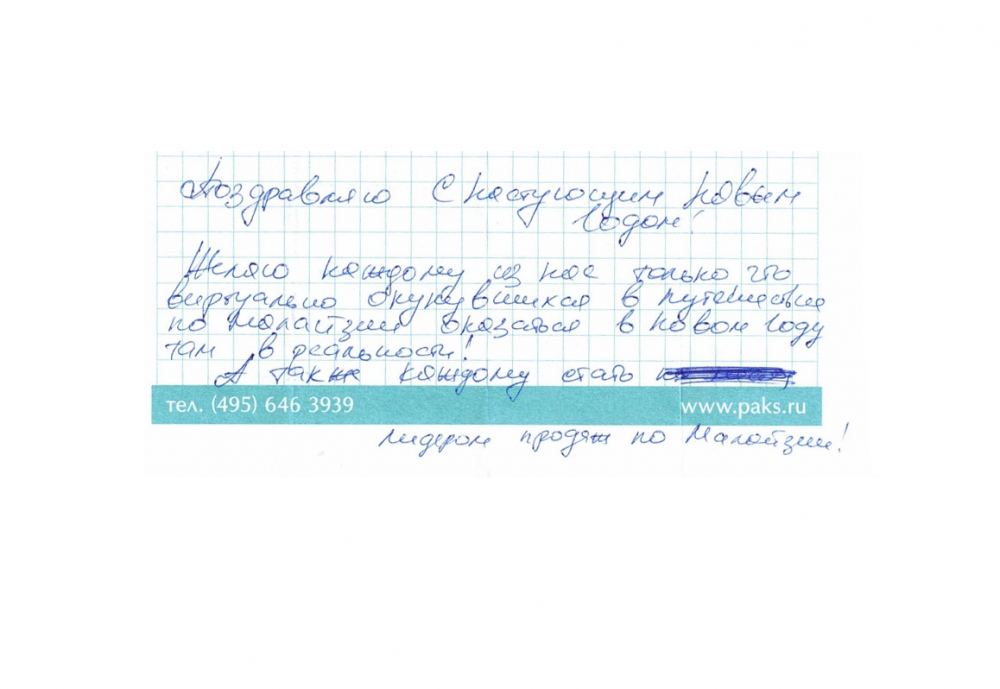 Поздравляю С наступющим Новым
Годом!
Желяю каждому из нас только что
виртуально окунувшихся в путешествие
по Малайзии оказаться в Новом Году
там в реальности!
А также каждому стать
тел. (495) 646 3939 www.paks.ru
лидером продаж по Малайзии!